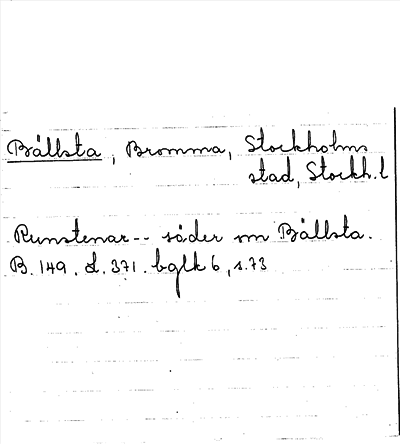 Bällsta, Bromma, Stockholms
stad, Stockh.l
Runstenar-- söder om Bällsta.
B. 149. L. 371. bglk 6, s.73